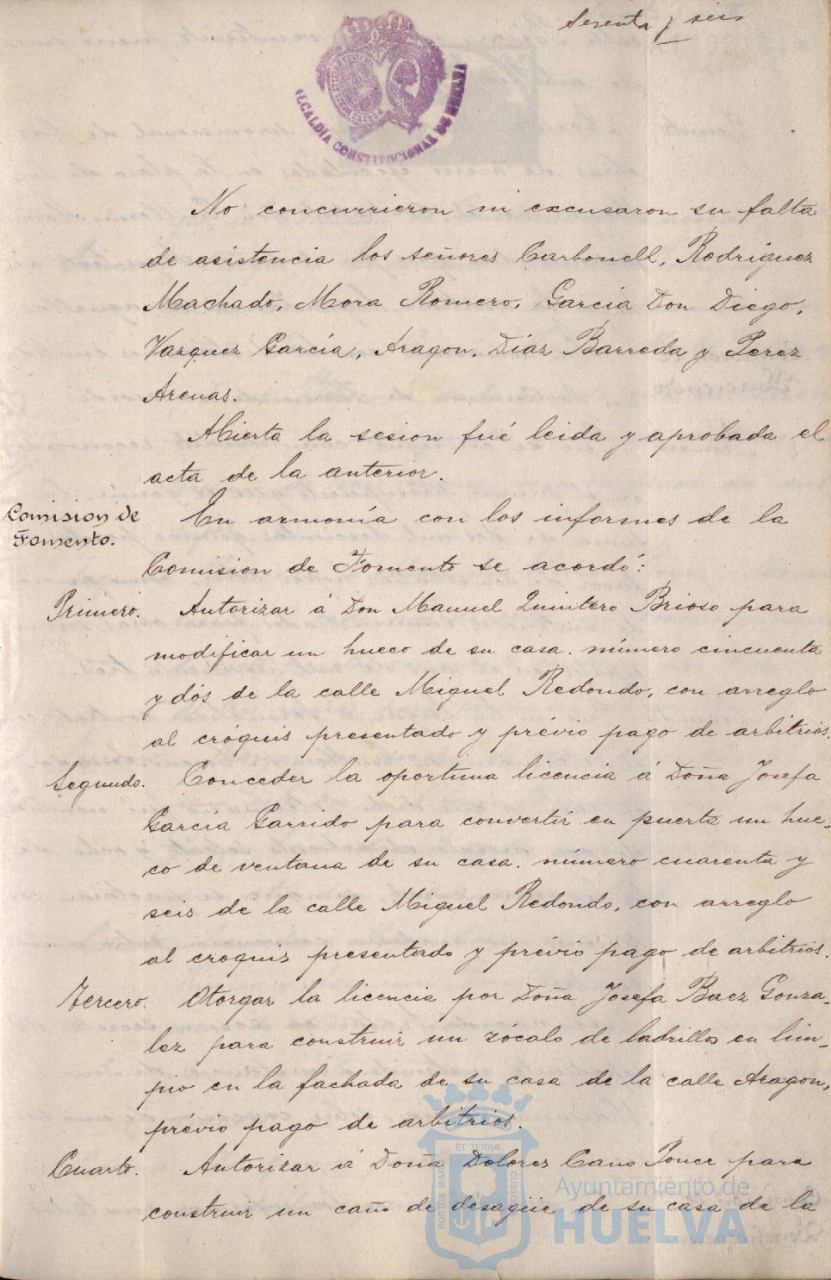 Sesenta y seis
ALCALDIA CONSTITUCIONAL DE HUELVA
No concurrieron ni excusaron su falta
de asistencia los señores Carbonell, Rodriguez
Machado, Mora Romero, García Don Diego,
Vazquez García, Aragon, Díaz Barreda y Perez
Arenas.
Abierta la sesion fué leida y aprobada el
acta de la anterior.
Comision de
Fomento.
En armonía con los informes de la
Comision de Fomento se acordó:
Primero. Autorizar á Don Manuel Quintero Brioso para
modificar un hueco de su casa número cincuenta
y dós de la calle Miguel Redondo, con arreglo
al cróquis presentado y prévio pago de arbitrios.
Segundo. Conceder la oportuna licencia á Doña Josefa
García Garrido para convertir en puerta un hue-
co de ventana de su casa número cuarenta y
seis de la calle Miguel Redondo, con arreglo
al croquis presentado y prévio pago de arbitrios.
Tercero. Otorgar la licencia por Doña Josefa Baez Gonza-
lez para construir un zócalo de ladrillos en lim-
pio en la fachada de su casa de la calle Aragon,
prévio pago de arbitrios.
Cuarto. Autorizar á Doña Dolores Cano Ponce para
construir un caño de desagüe de su casa de la
Ayuntamiento de
HUELVA